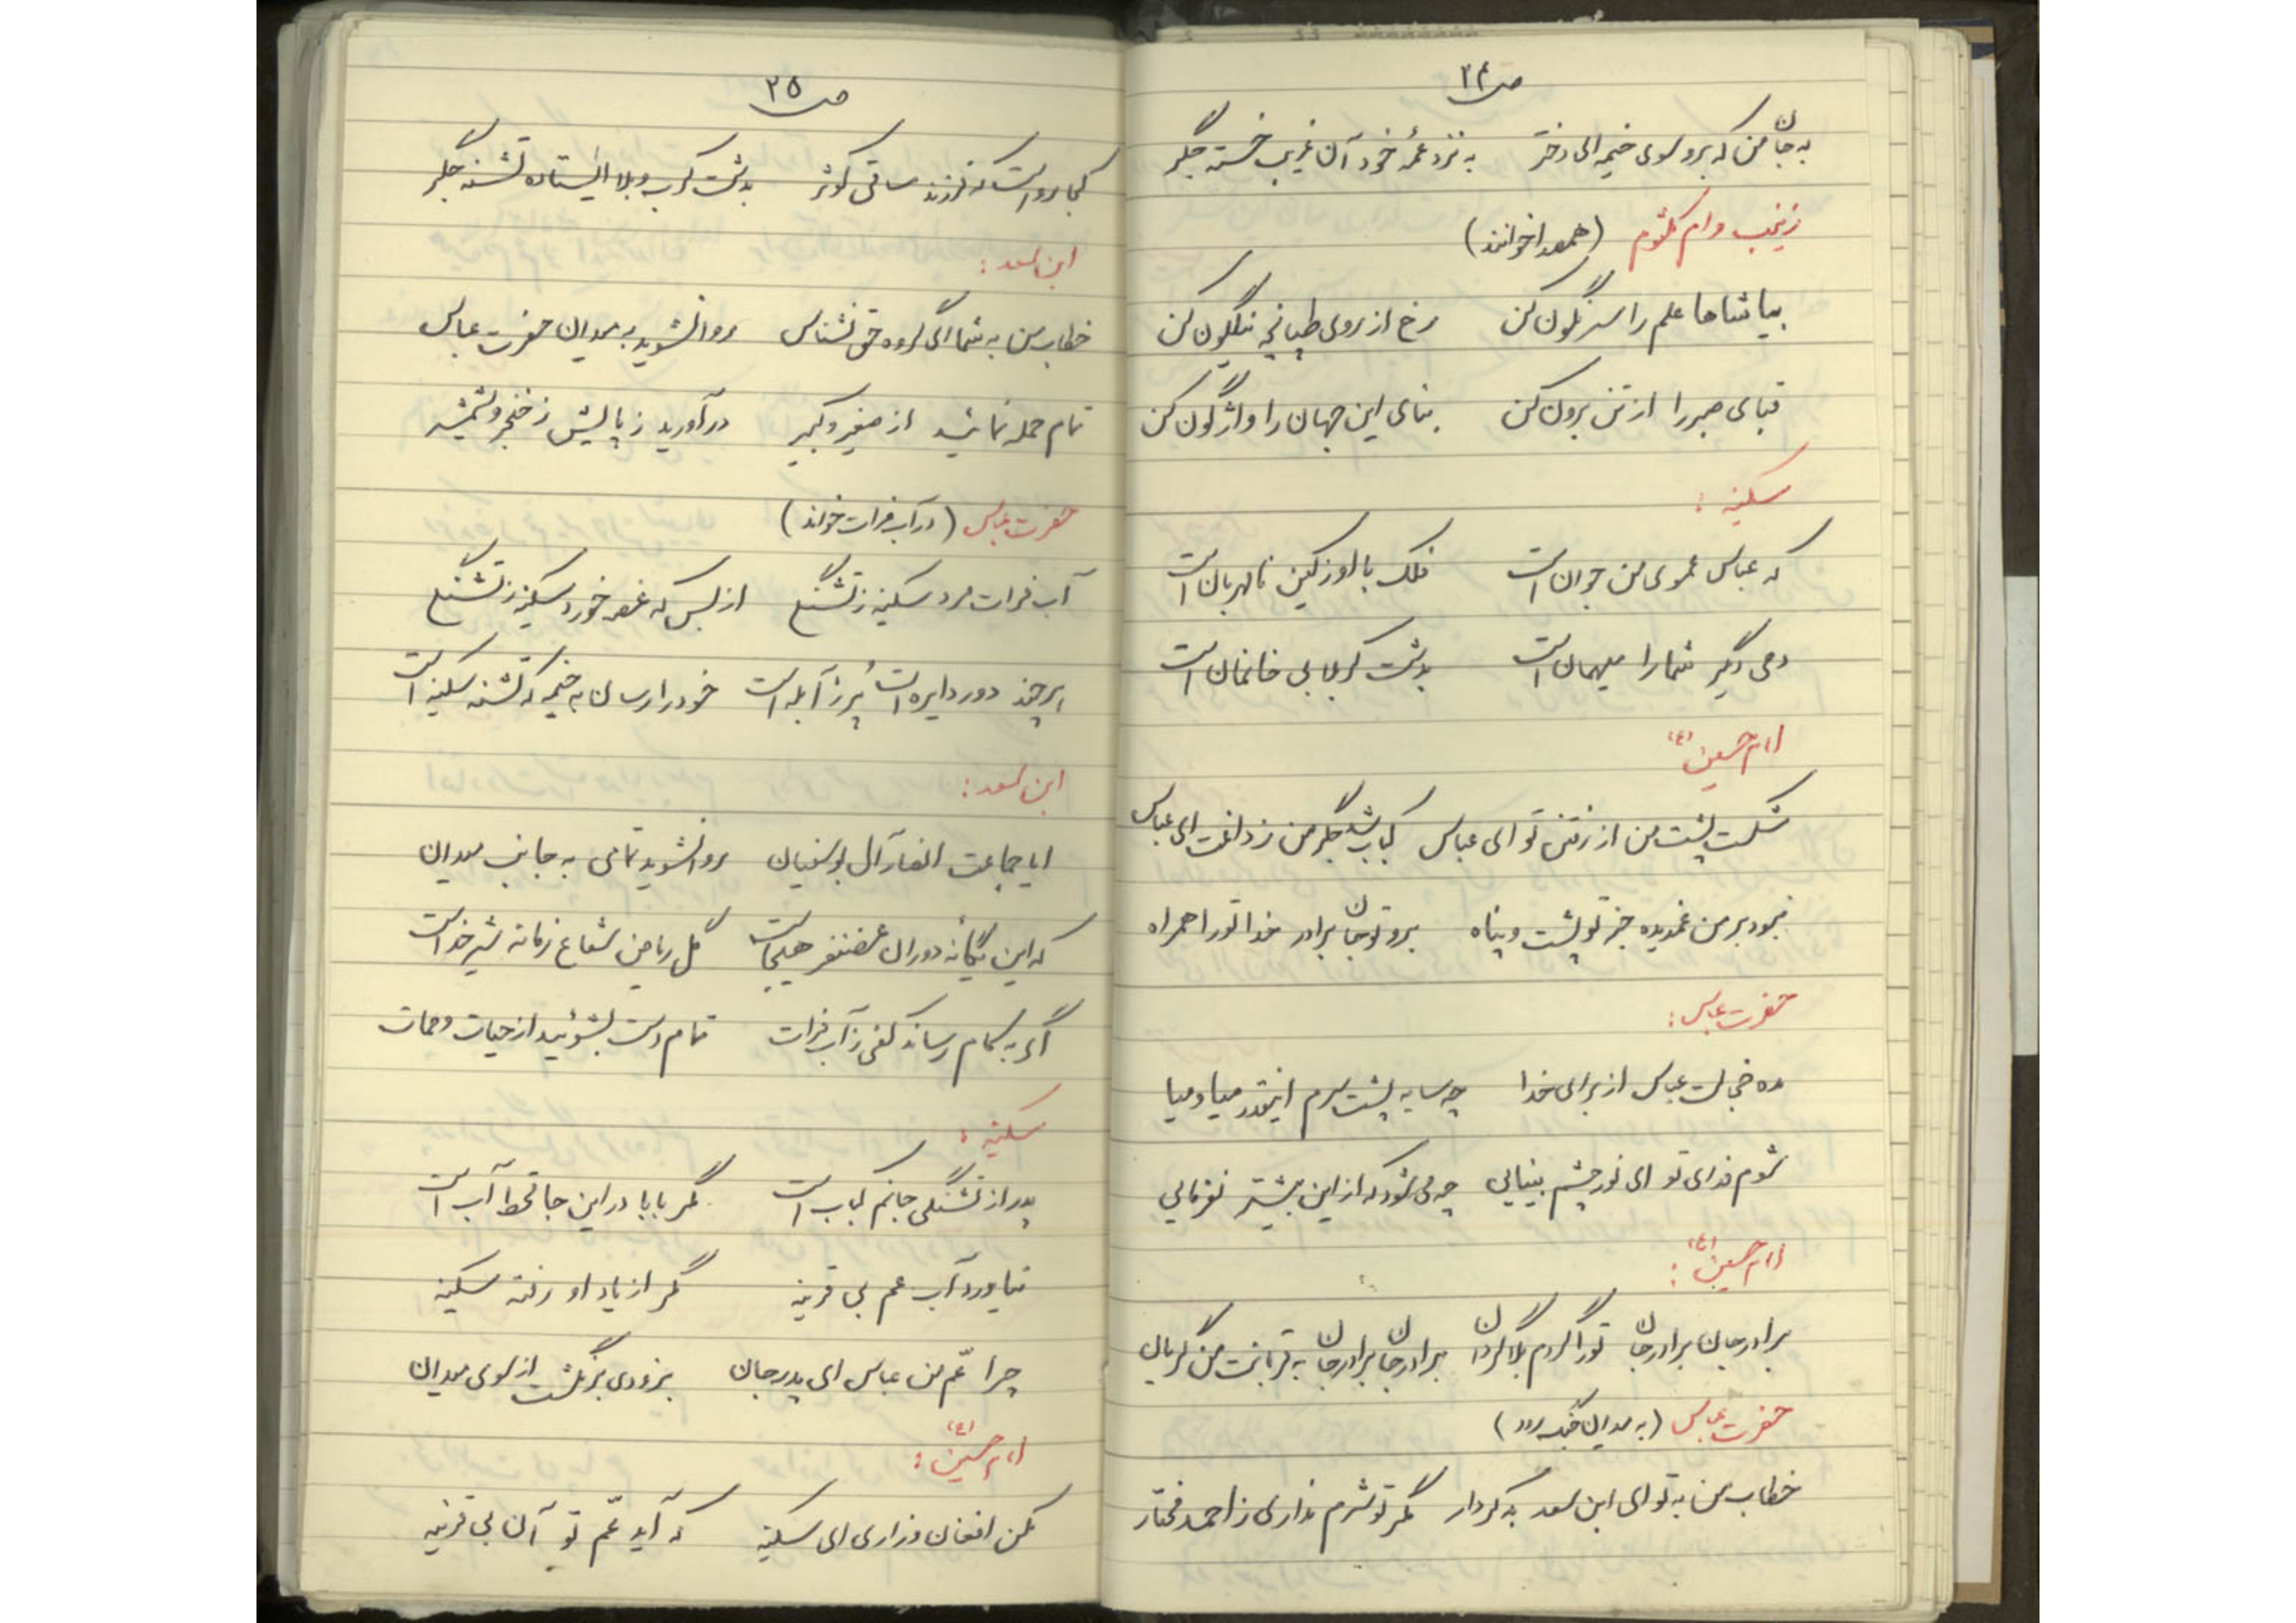 ص ۲۴
به جان من که برو سوی خیمه ای دختر به نزد عمهٔ خود آن غریب خسته جگر
زینب و ام کلثوم (همصدا خوانند)
بیا شاها علم را سرنگون کن رخ از روی طپانچه نیلگون کن
قبای صبر را از تن برون کن بنای این جهان را واژگون کن
سکینه :
که عباس عموی من جوان است فلک با او ز کین نامهربان است
دمی دیگر شما را میهمان است بدشت کربلا بی خانمان است
امام حسین (ع)
شکست پشت من از رفتن تو ای عباس کباب شد جگر من ز داغت ای عباس
نبود بر من غمدیده جز تو پشت و پناه برو تو جان برادر خدا تو را همراه
حضرت عباس :
مده خجالت عباس از برای خدا چه سایه پشت سرم اینقدر میا و میا
شوم فدای تو ای نور چشم بینایی چه می شود که از این بیشتر نفرمایی
امام حسین (ع) :
برادر جان برادر جان تو را گردم بلا گردان برادر جان برادر جان به قربانت من گریان
حضرت عباس (به میدان جنگ رود)
خطاب من به تو ای ابن سعد بد کردار مگر تو شرم نداری ز احمد مختار
ص ۲۵
کجا رواست که فرزند ساقی کوثر بدشت کرب و بلا ایستاده تشنه جگر
ابن سعد :
خطاب من به شما ای گروه حق نشناس روان شوید به میدان حضرت عباس
تمام حمله نمائید از صغیر و کبیر در آورید ز پایش ز خنجر و شمشیر
حضرت عباس (در آب فرات خواند)
آب فرات مرد سکینه ز تشنگی از بس که غصه خورد سکینه ز تشنگی
هر چند دور دایره است پُر ز آبله است خود را رسان به خیمه که تشنه سکینه است
ابن سعد :
ایا جماعت انصار آل بوسفیان روان شوید تمامی به جانب میدان
که این یگانه دوران غضنفر هیجاست گل ریاض شجاع زمانه شیر خداست
اگر به کام رساند کفی ز آب فرات تمام دست بشوئید از حیات و ممات
سکینه :
پدر از تشنگی جانم کباب است مگر بابا در این جا قحط آب است
نیاورد آب عم بی قرینه مگر از یاد او رفته سکینه
چرا عمّ من عباس ای پدر جان بزودی برنگشت از سوی میدان
امام حسین (ع) :
مکن افغان و زاری ای سکینه که آید عمّ تو آن بی قرینه